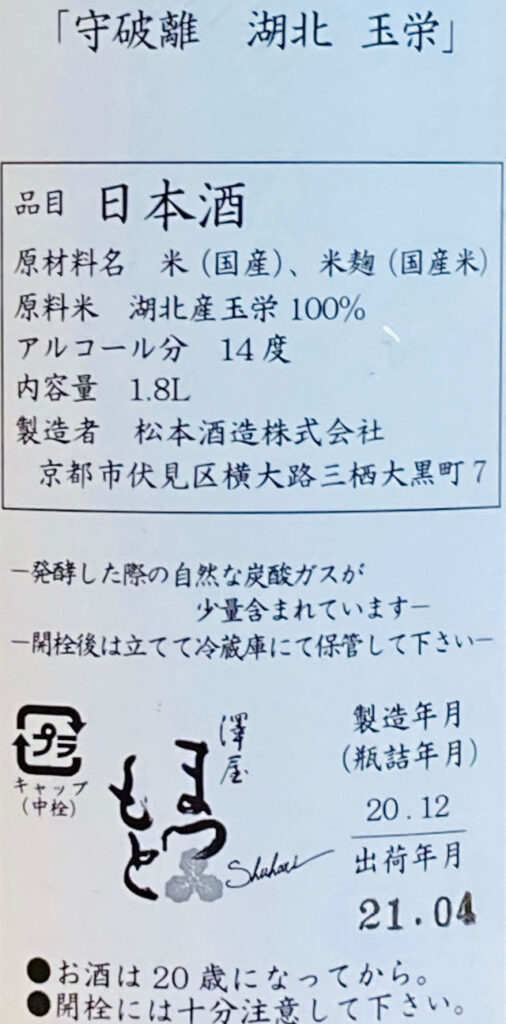 「守破離　湖北　玉栄」
品目　日本酒
原材料名　米（国産）、米麹（国産米）
原料米　湖北産玉栄 100%
アルコール分　14 度
内容量　1.8L
製造者　松本酒造株式会社
京都市伏見区横大路三栖大黒町 7
−発酵した際の自然な炭酸ガスが
少量含まれています−
−開栓後は立てて冷蔵庫にて保管して下さい−
プラ
キャップ
（中栓）
澤屋
まつ
もと
Shuhari
製造年月
（瓶詰年月）
20.12
出荷年月
21.04
●お酒は 20 歳になってから。
●開栓には十分注意して下さい。